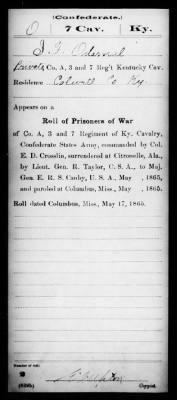 (Confederate.)
O 7 Cav. Ky.
Private, Co. A, 3 and 7 Reg't Kentucky Cav.
Residence Co Ky.
Appears on a
Roll of Prisoners of War
of Co. A, 3 and 7 Regiment of Ky. Cavalry,
Confederate States Army, commanded by Col.
E. D. Crosslin, surrendered at Citronelle, Ala.,
by Lieut. Gen. R. Taylor, C. S. A., to Maj.
Gen. E. R. S. Canby, U. S. A., May , 1865,
and paroled at Columbus, Miss., May , 1865.
Roll dated Columbus, Miss, May 17, 1865.
Number of roll:
(639b)
Copyist.